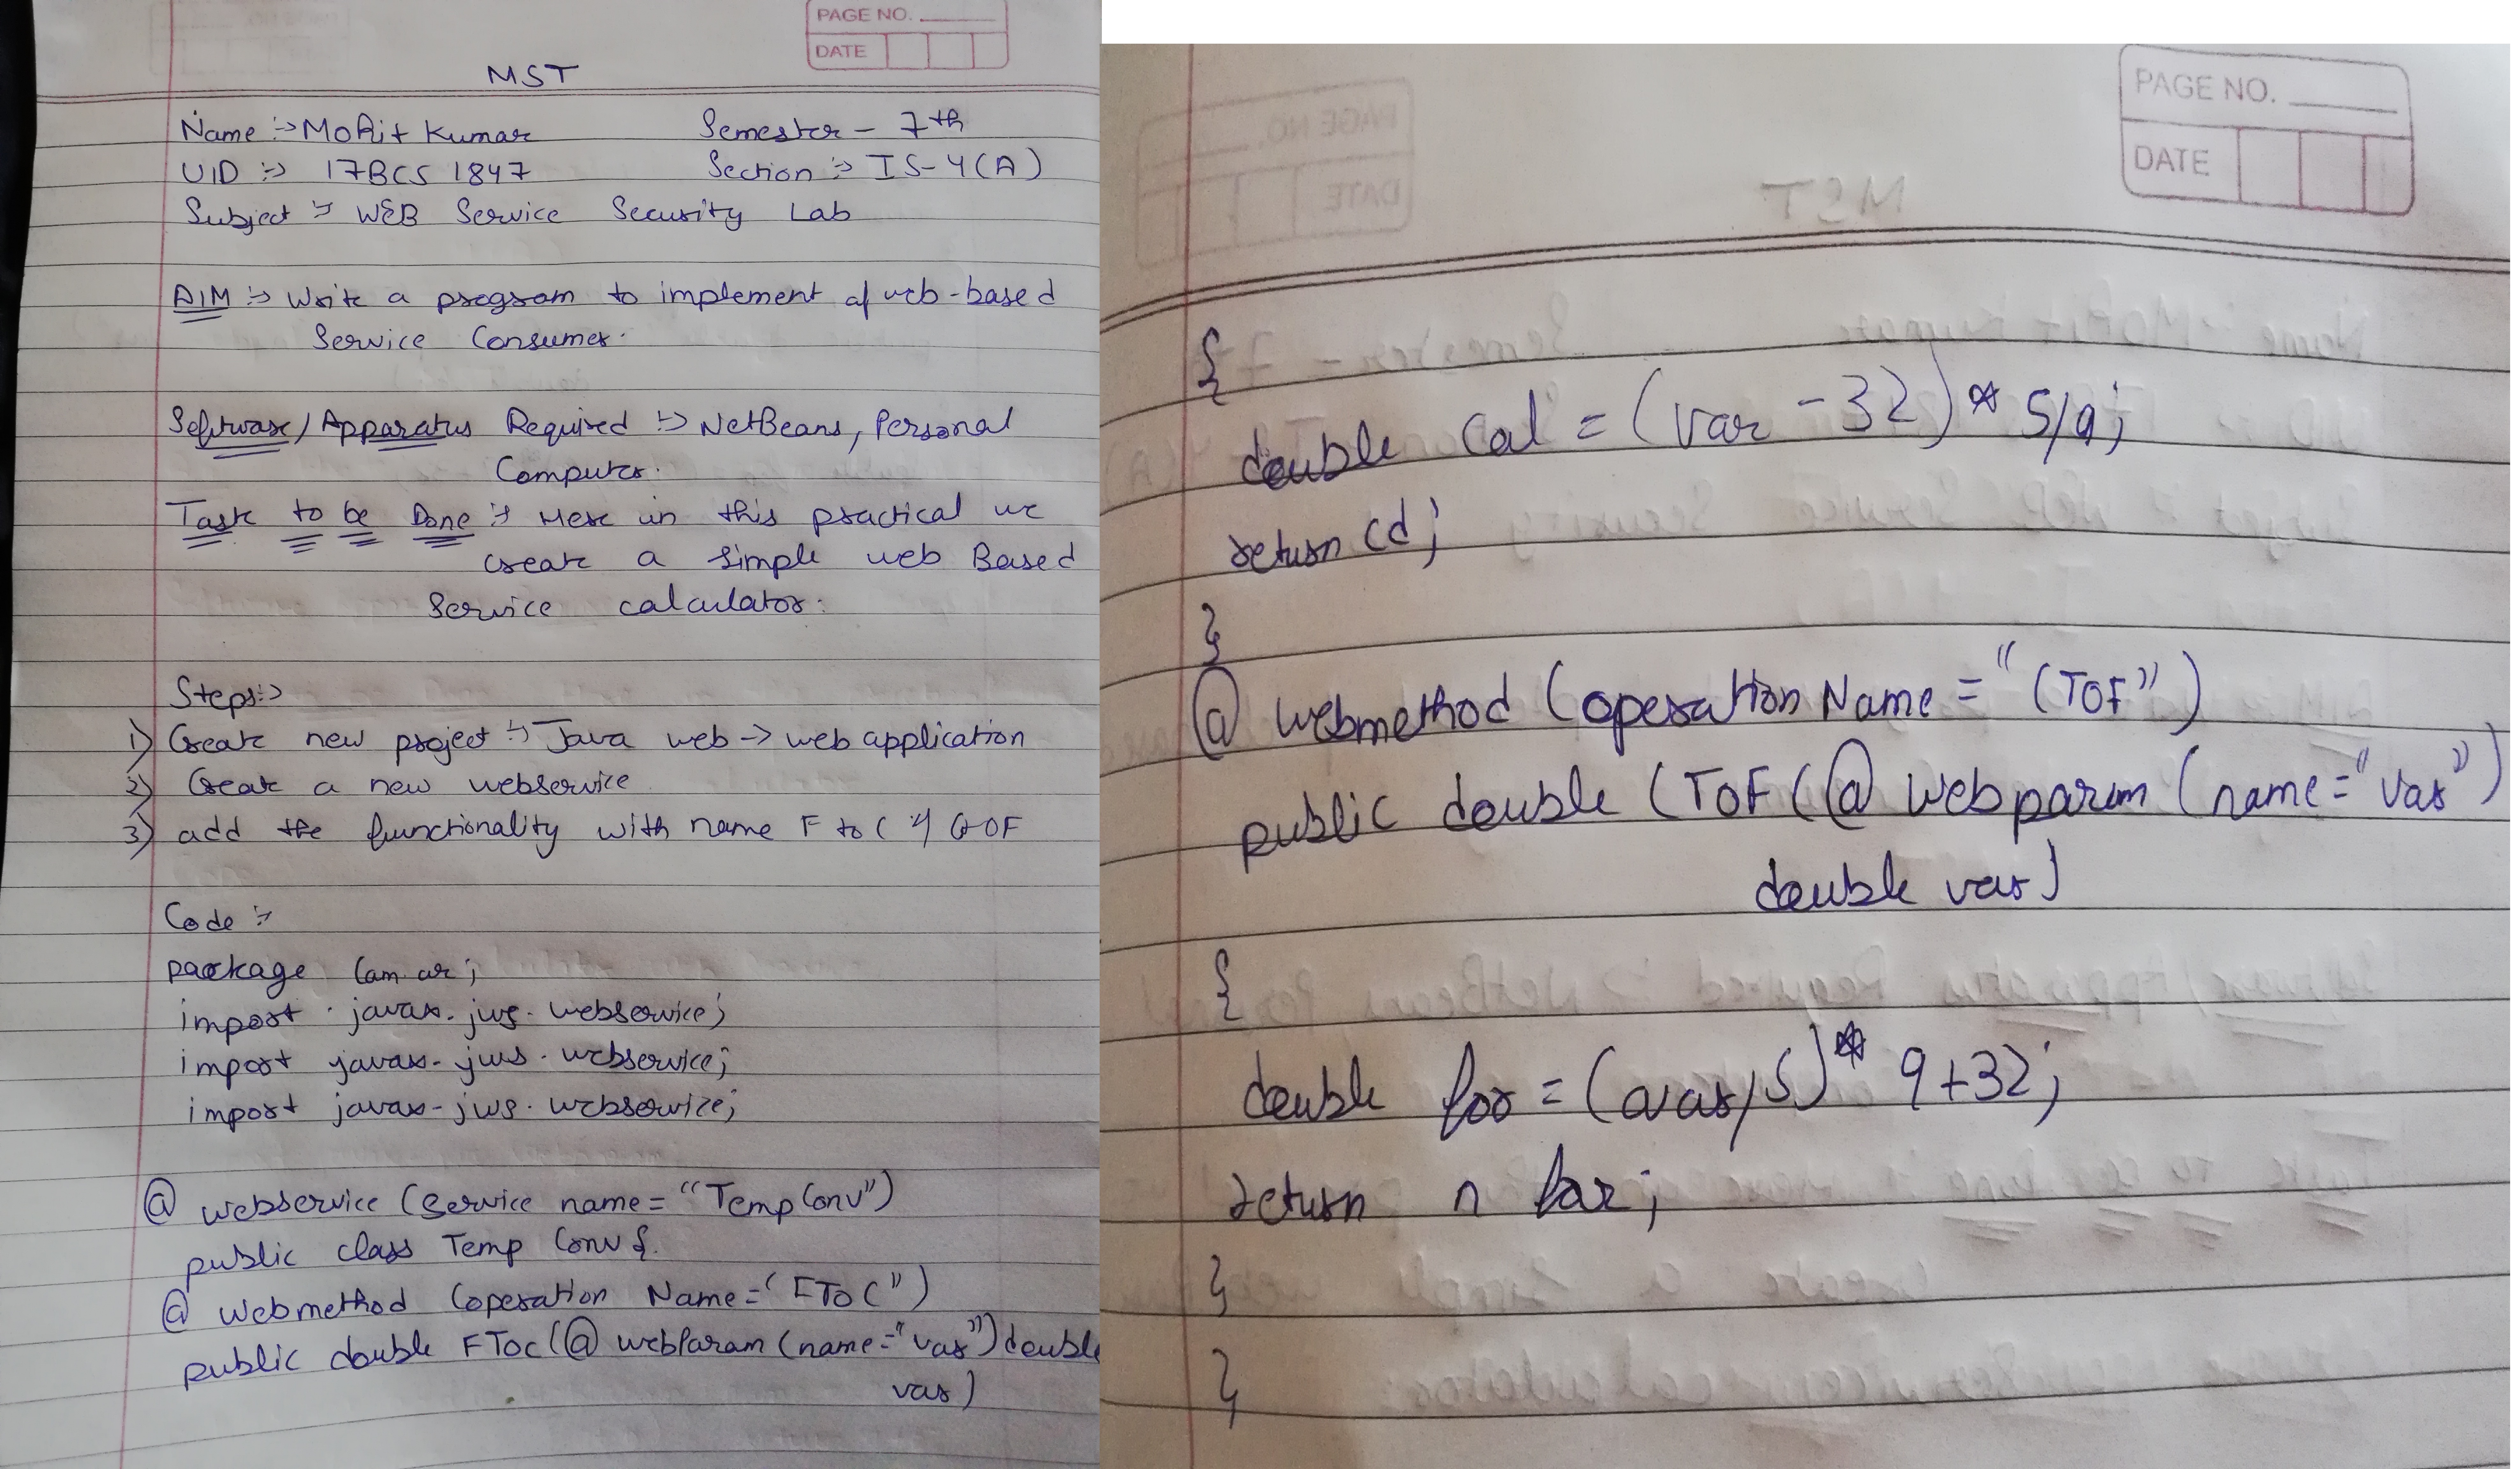 PAGE NO.
DATE
MST
Name :-> Mohit Kumar Semester - 7th
UID :-> 17BCS1847 Section :-> IS-4(A)
Subject :-> WEB Service Security Lab
AIM :-> Write a program to implement a web-based
Service Consumer.
Software/Apparatus Required :-> NetBeans, Personal
Computer.
Task to be Done :-> Here in this practical we
create a simple web Based
Service calculator.
Steps :->
1) Create new project :-> Java web -> web application
2) Create a new webservice
3) add the functionality with name F to C
Code :->
package
import javax.jws.webservice;
import javax.jws.webservice;
import javax.jws.webservice;
@ webservice (service name = "Temp Conv")
public class Temp Conv {
@ Webmethod (operation Name = "FToC")
public double FToC (@ webParam (name = "var") double
var)
PAGE NO.
DATE
{
double Cal = (var - 32) * 5/9;
return Cd;
}
@ webmethod (operation Name = "CTOF")
public double CTOF (@ webparam (name = "var")
double var)
{
double for = (/5) * 9+32;
return n far;
}
}